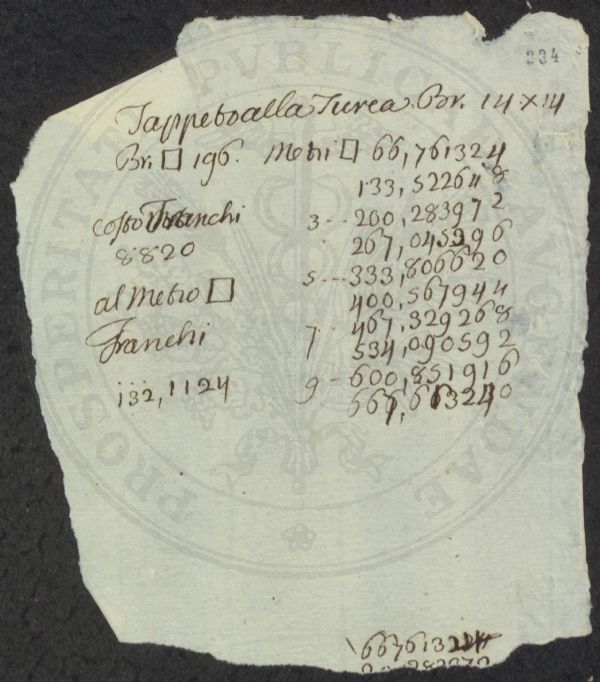 234
Tappeto alla Turca Br. 14 x 14
Br. □ 196. Metri □ 66,761324
133,522648
costo Franchi 3 -- 200,283972
8820 267,045296
5 --- 333,806620
al Metro □ 400,567944
7 - 467,329268
Franchi 534,090592
132,1124 9 - 600,851916
667,613240
PROSPERITATI PUBLICAE AUGENDAE
667613224